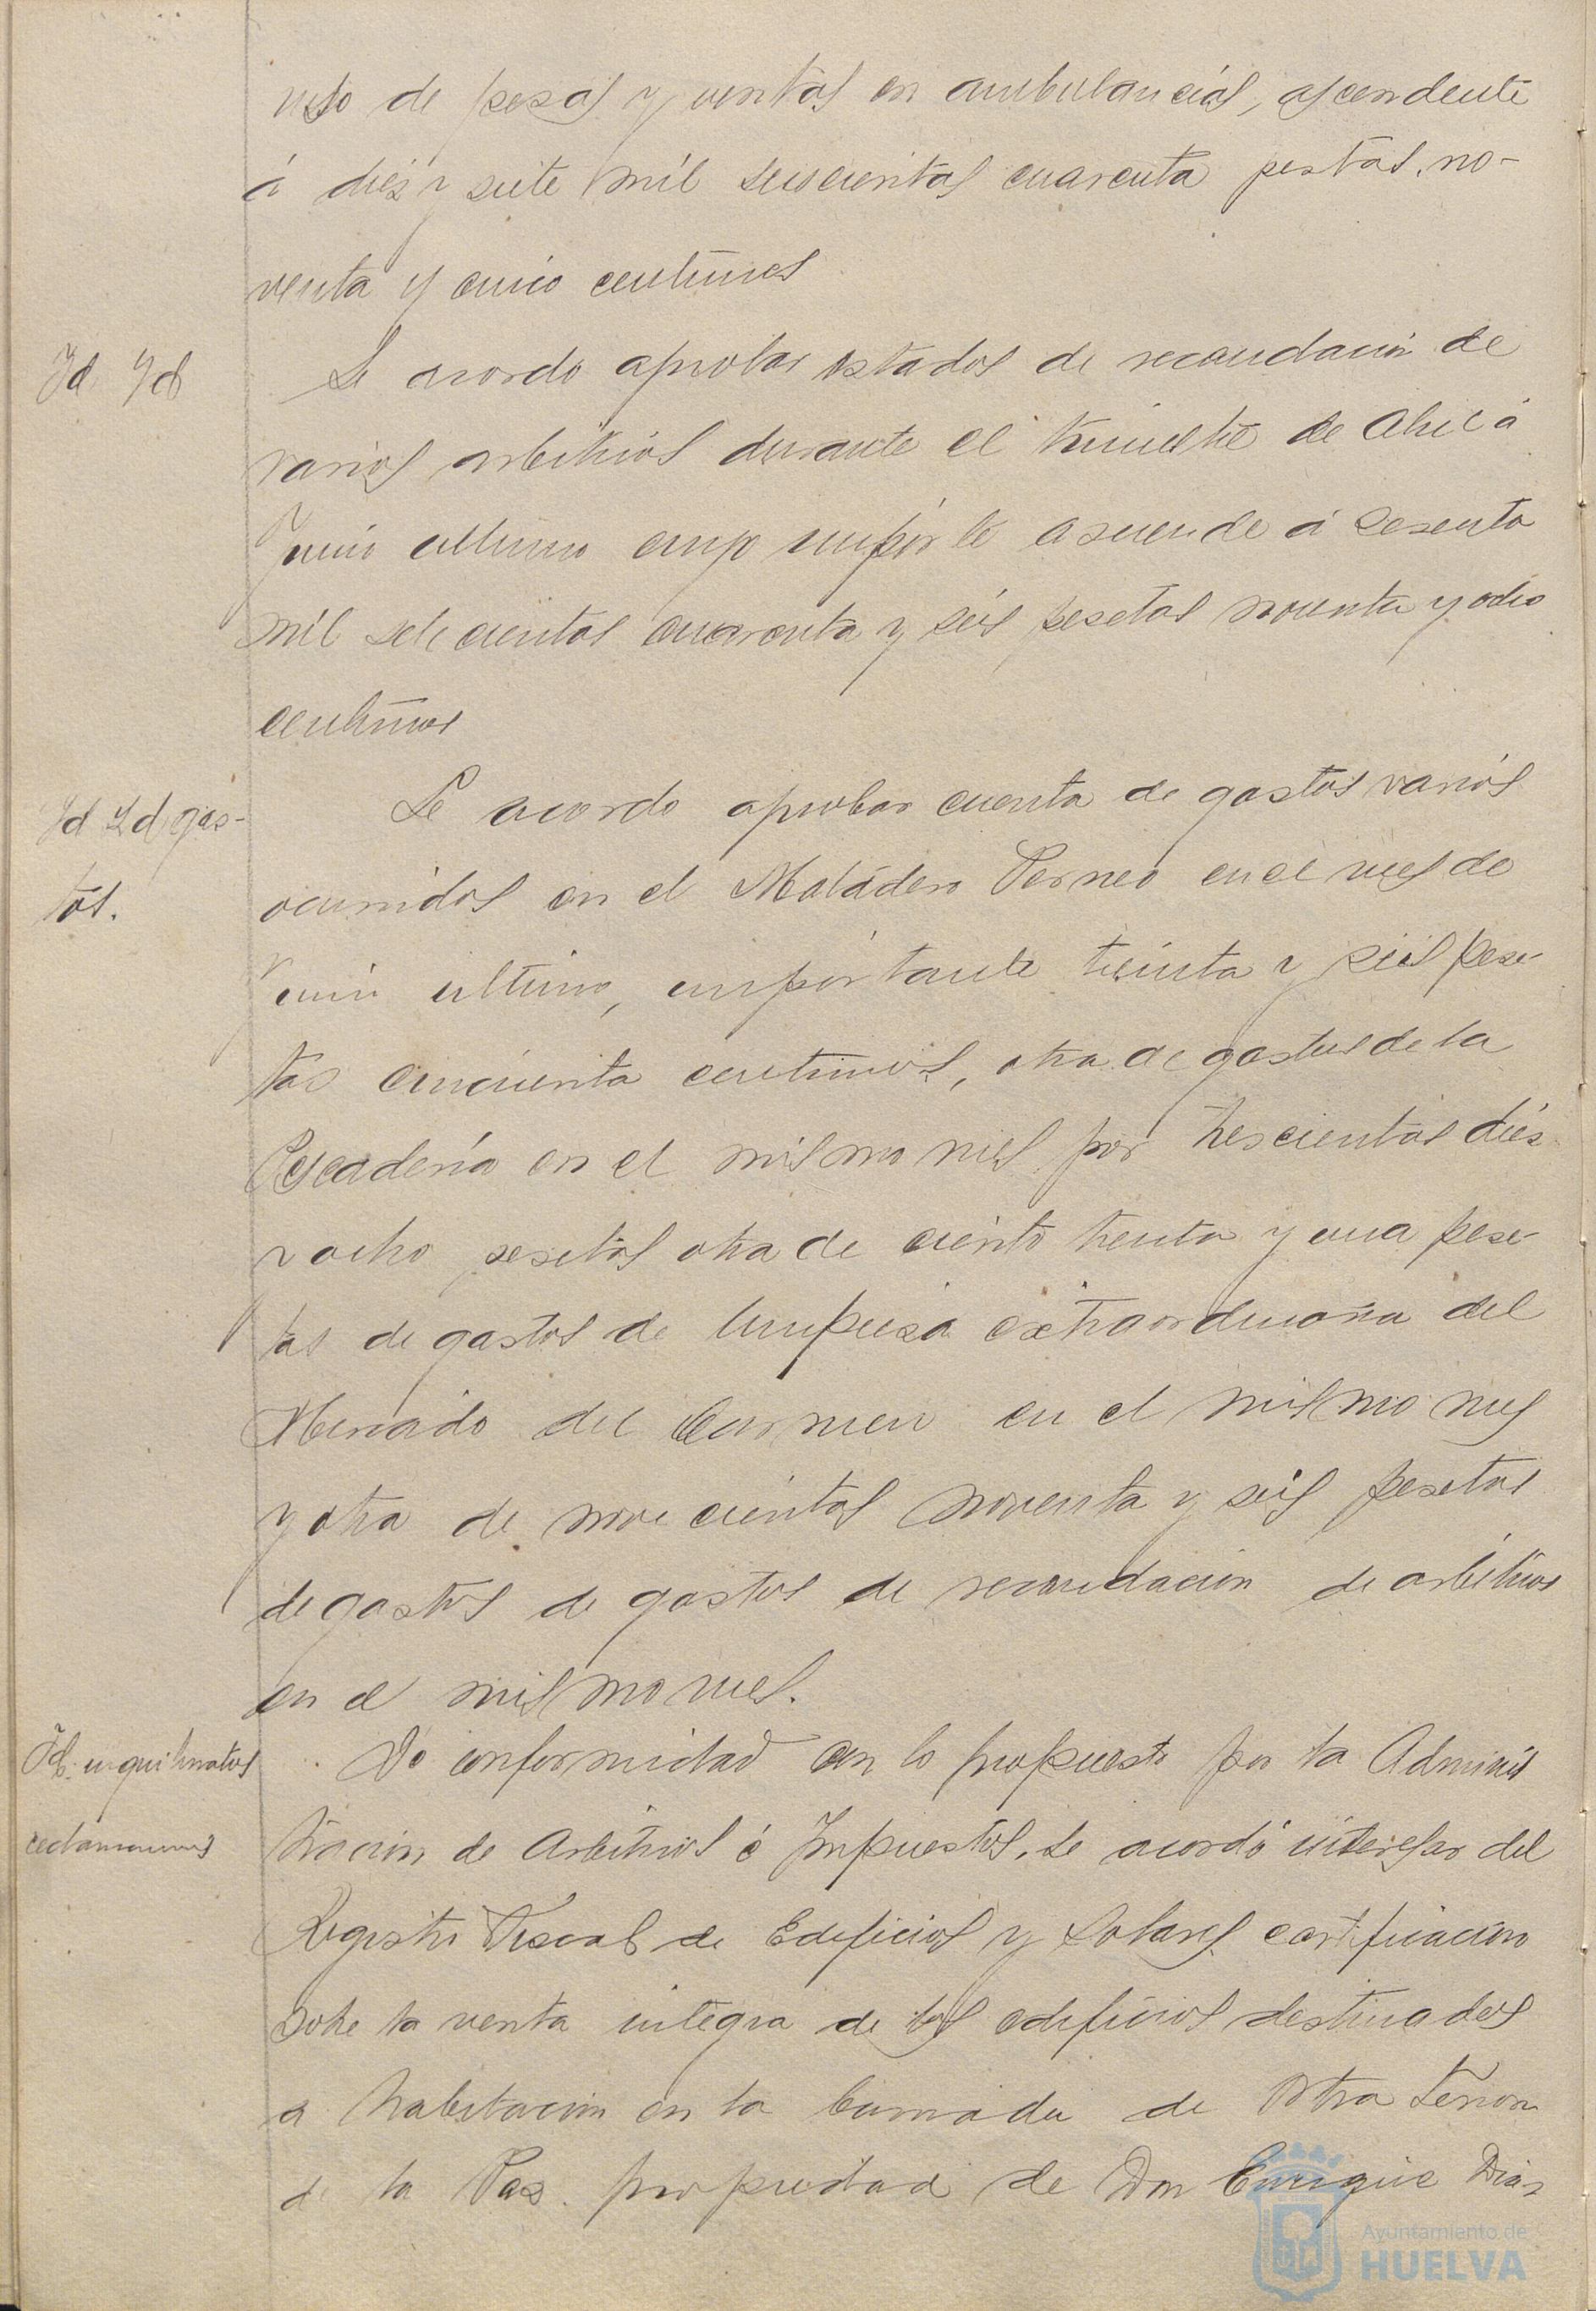 nsto de pesas y ventas en ambulancias, ascendente
á dies y siete mil seiscientas cuarenta pesetas, no-
venta y cinco centimos
Id. Id
Se acordo aprobar estados de recaudacion de
varios arbitrios durante el trimestre de Abril á
Junio ultimo cuyo importe asciende á sesenta
mil setecientas cuarenta y seis pesetas noventa y ocho
centimos
Id Id gas-
tos.
Se acordo aprobar cuenta de gastos varios
ocurridos en el Matadero Perneo en el mes de
Junio ultimo, importante treinta y seis pese-
tas cincuenta centimos, otra de gastos de la
Pescadería en el mismo mes por trescientas dies
y ocho pesetas otra de ciento trenta y una pese-
tas de gastos de limpieza extraordinaria del
Mercado del Carmen en el mismo mes
y otra de novecientas noventa y seis pesetas
de gastos de gastos de recaudacion de arbitrios
en el mismo mes.
Id. inquilinatos
reclamaciones
De conformidad con lo propuesto por la Adminis
tracion de Arbitrios é Impuestos, se acordó interesar del
Registro Fiscal de Edificios y Solares certificacion
sobre la renta integra de los edificios destinados
a habitacion en la barriada de Ntra Señora
de la Paz propiedad de Don Enrique Dias
Ayuntamiento de
HUELVA